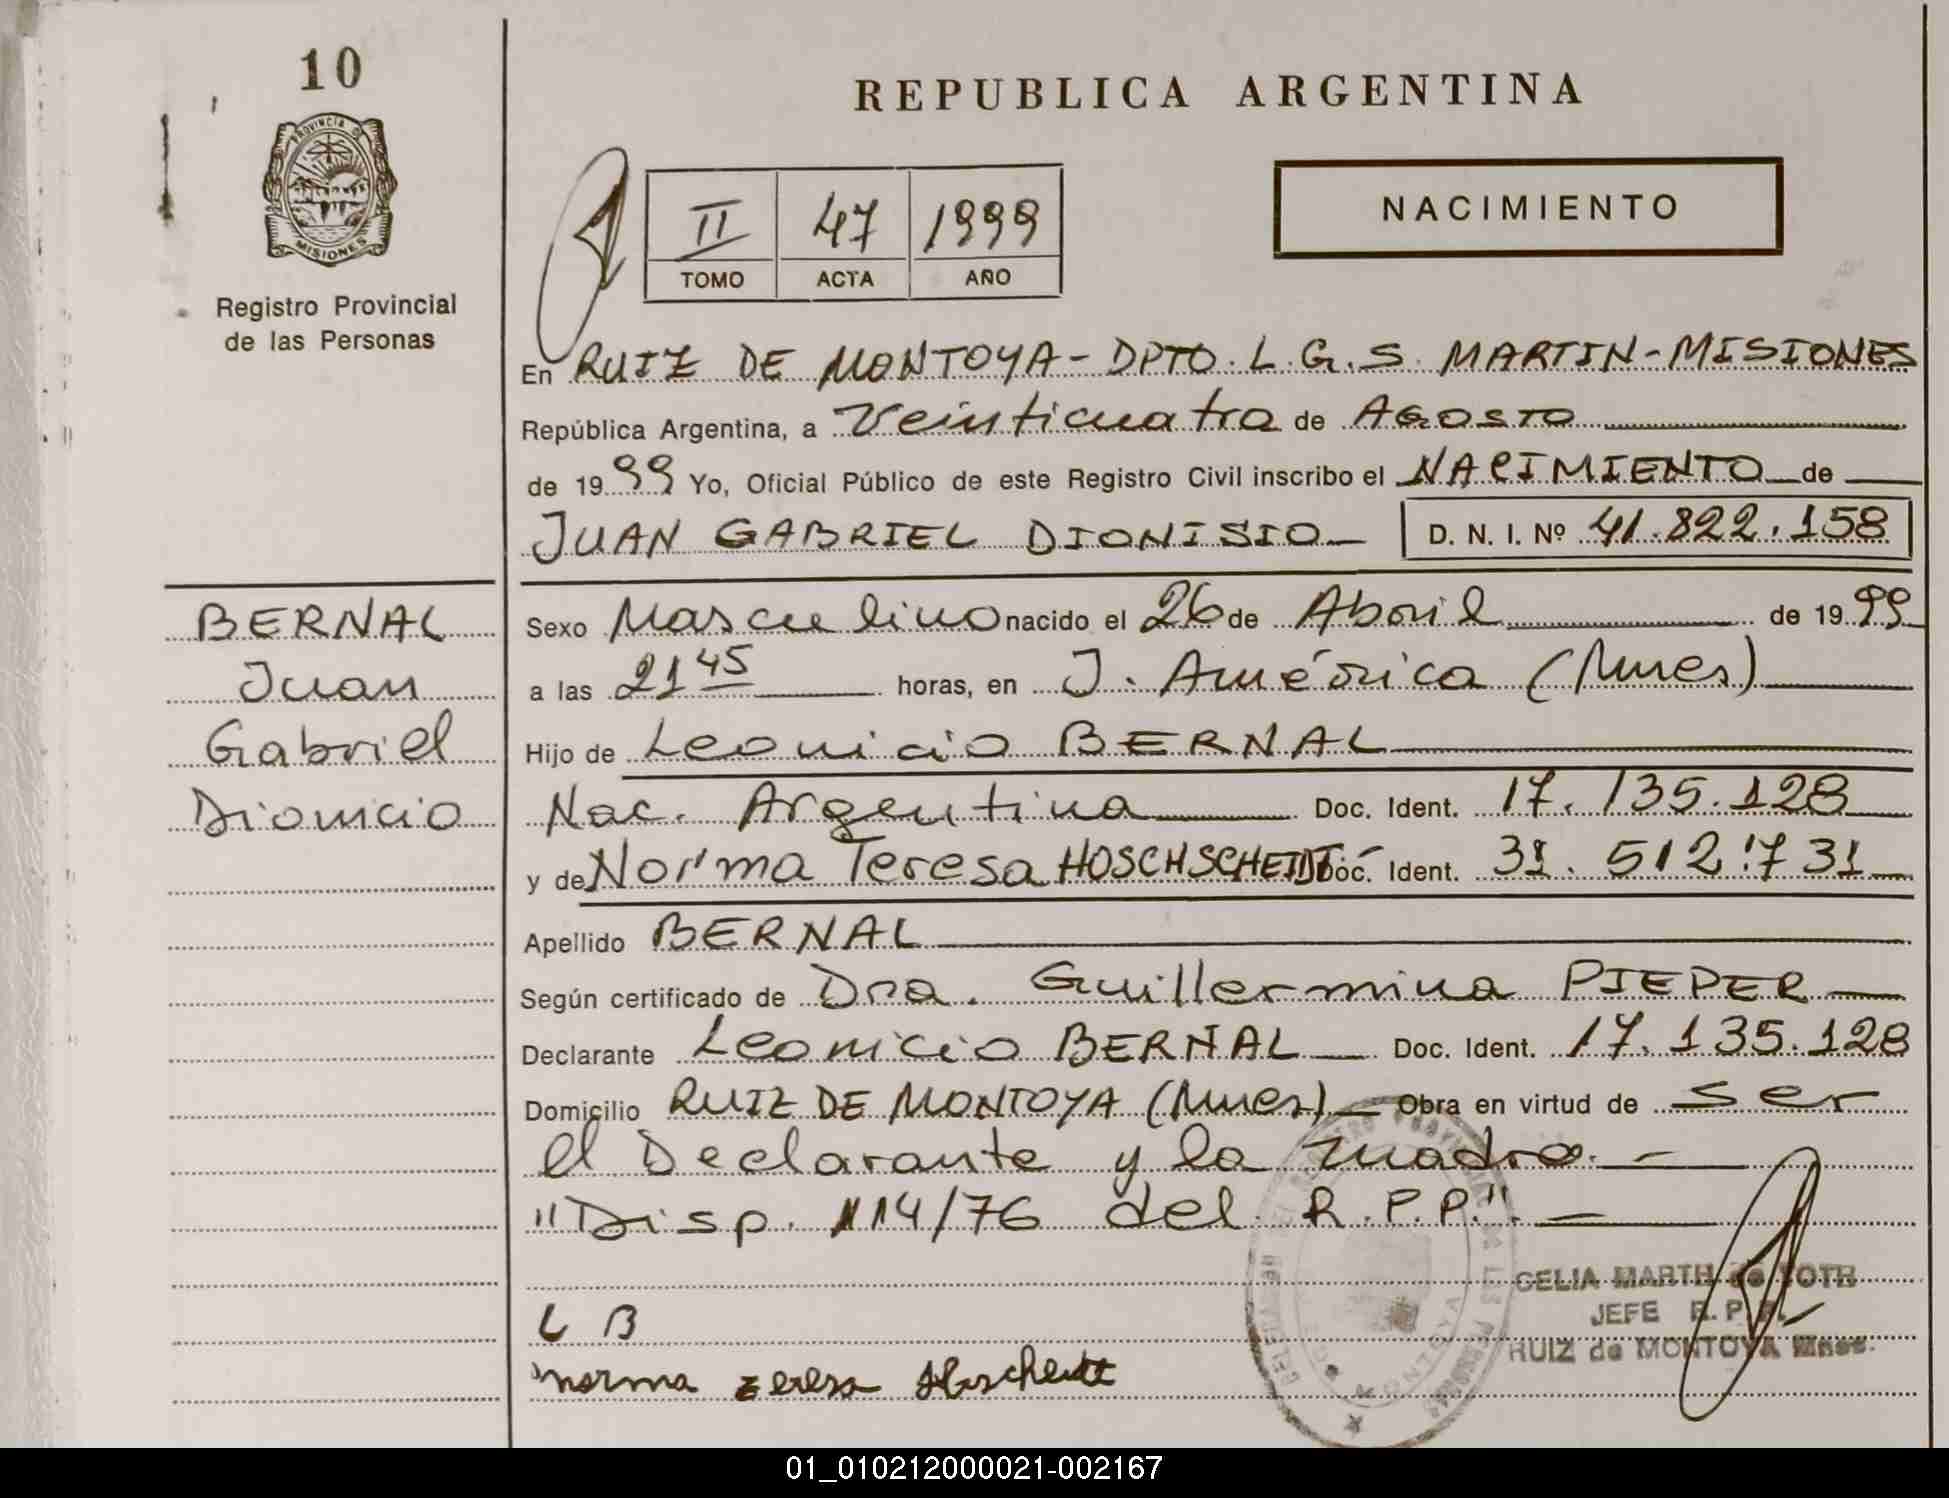 10
PROVINCIA DE
MISIONES
Registro Provincial
de las Personas
REPUBLICA ARGENTINA
II 47 1999
TOMO ACTA AÑO
NACIMIENTO
En RUIZ DE MONTOYA - DPTO. L. G. S. MARTIN - MISIONES
República Argentina, a Veinticuatro de AGOSTO
de 1999 Yo, Oficial Público de este Registro Civil inscribo el NACIMIENTO de
JUAN GABRIEL DIONISIO D. N. I. Nº 41.822.158
BERNAL
Juan
Gabriel
Dionicio
Sexo Masculino nacido el 26 de Abril de 1999
a las 21 45 horas, en J. América (Mnes)
Hijo de Leonicio BERNAL
Nac. Argentina Doc. Ident. 17.135.128
y de Norma Teresa HOSCHSCHEIDT Doc. Ident. 31.512.731
Apellido BERNAL
Según certificado de Dra. Guillermina PIEPER
Declarante Leonicio BERNAL Doc. Ident. 17.135.128
Domicilio RUIZ DE MONTOYA (Mnes) Obra en virtud de ser
el Declarante y la madre.
"Disp. 114/76 del R.P.P."
L B
norma teresa
CELIA MARTH de TOTH
JEFE R.P.P.
RUIZ de MONTOYA Mnes.
01_010212000021-002167